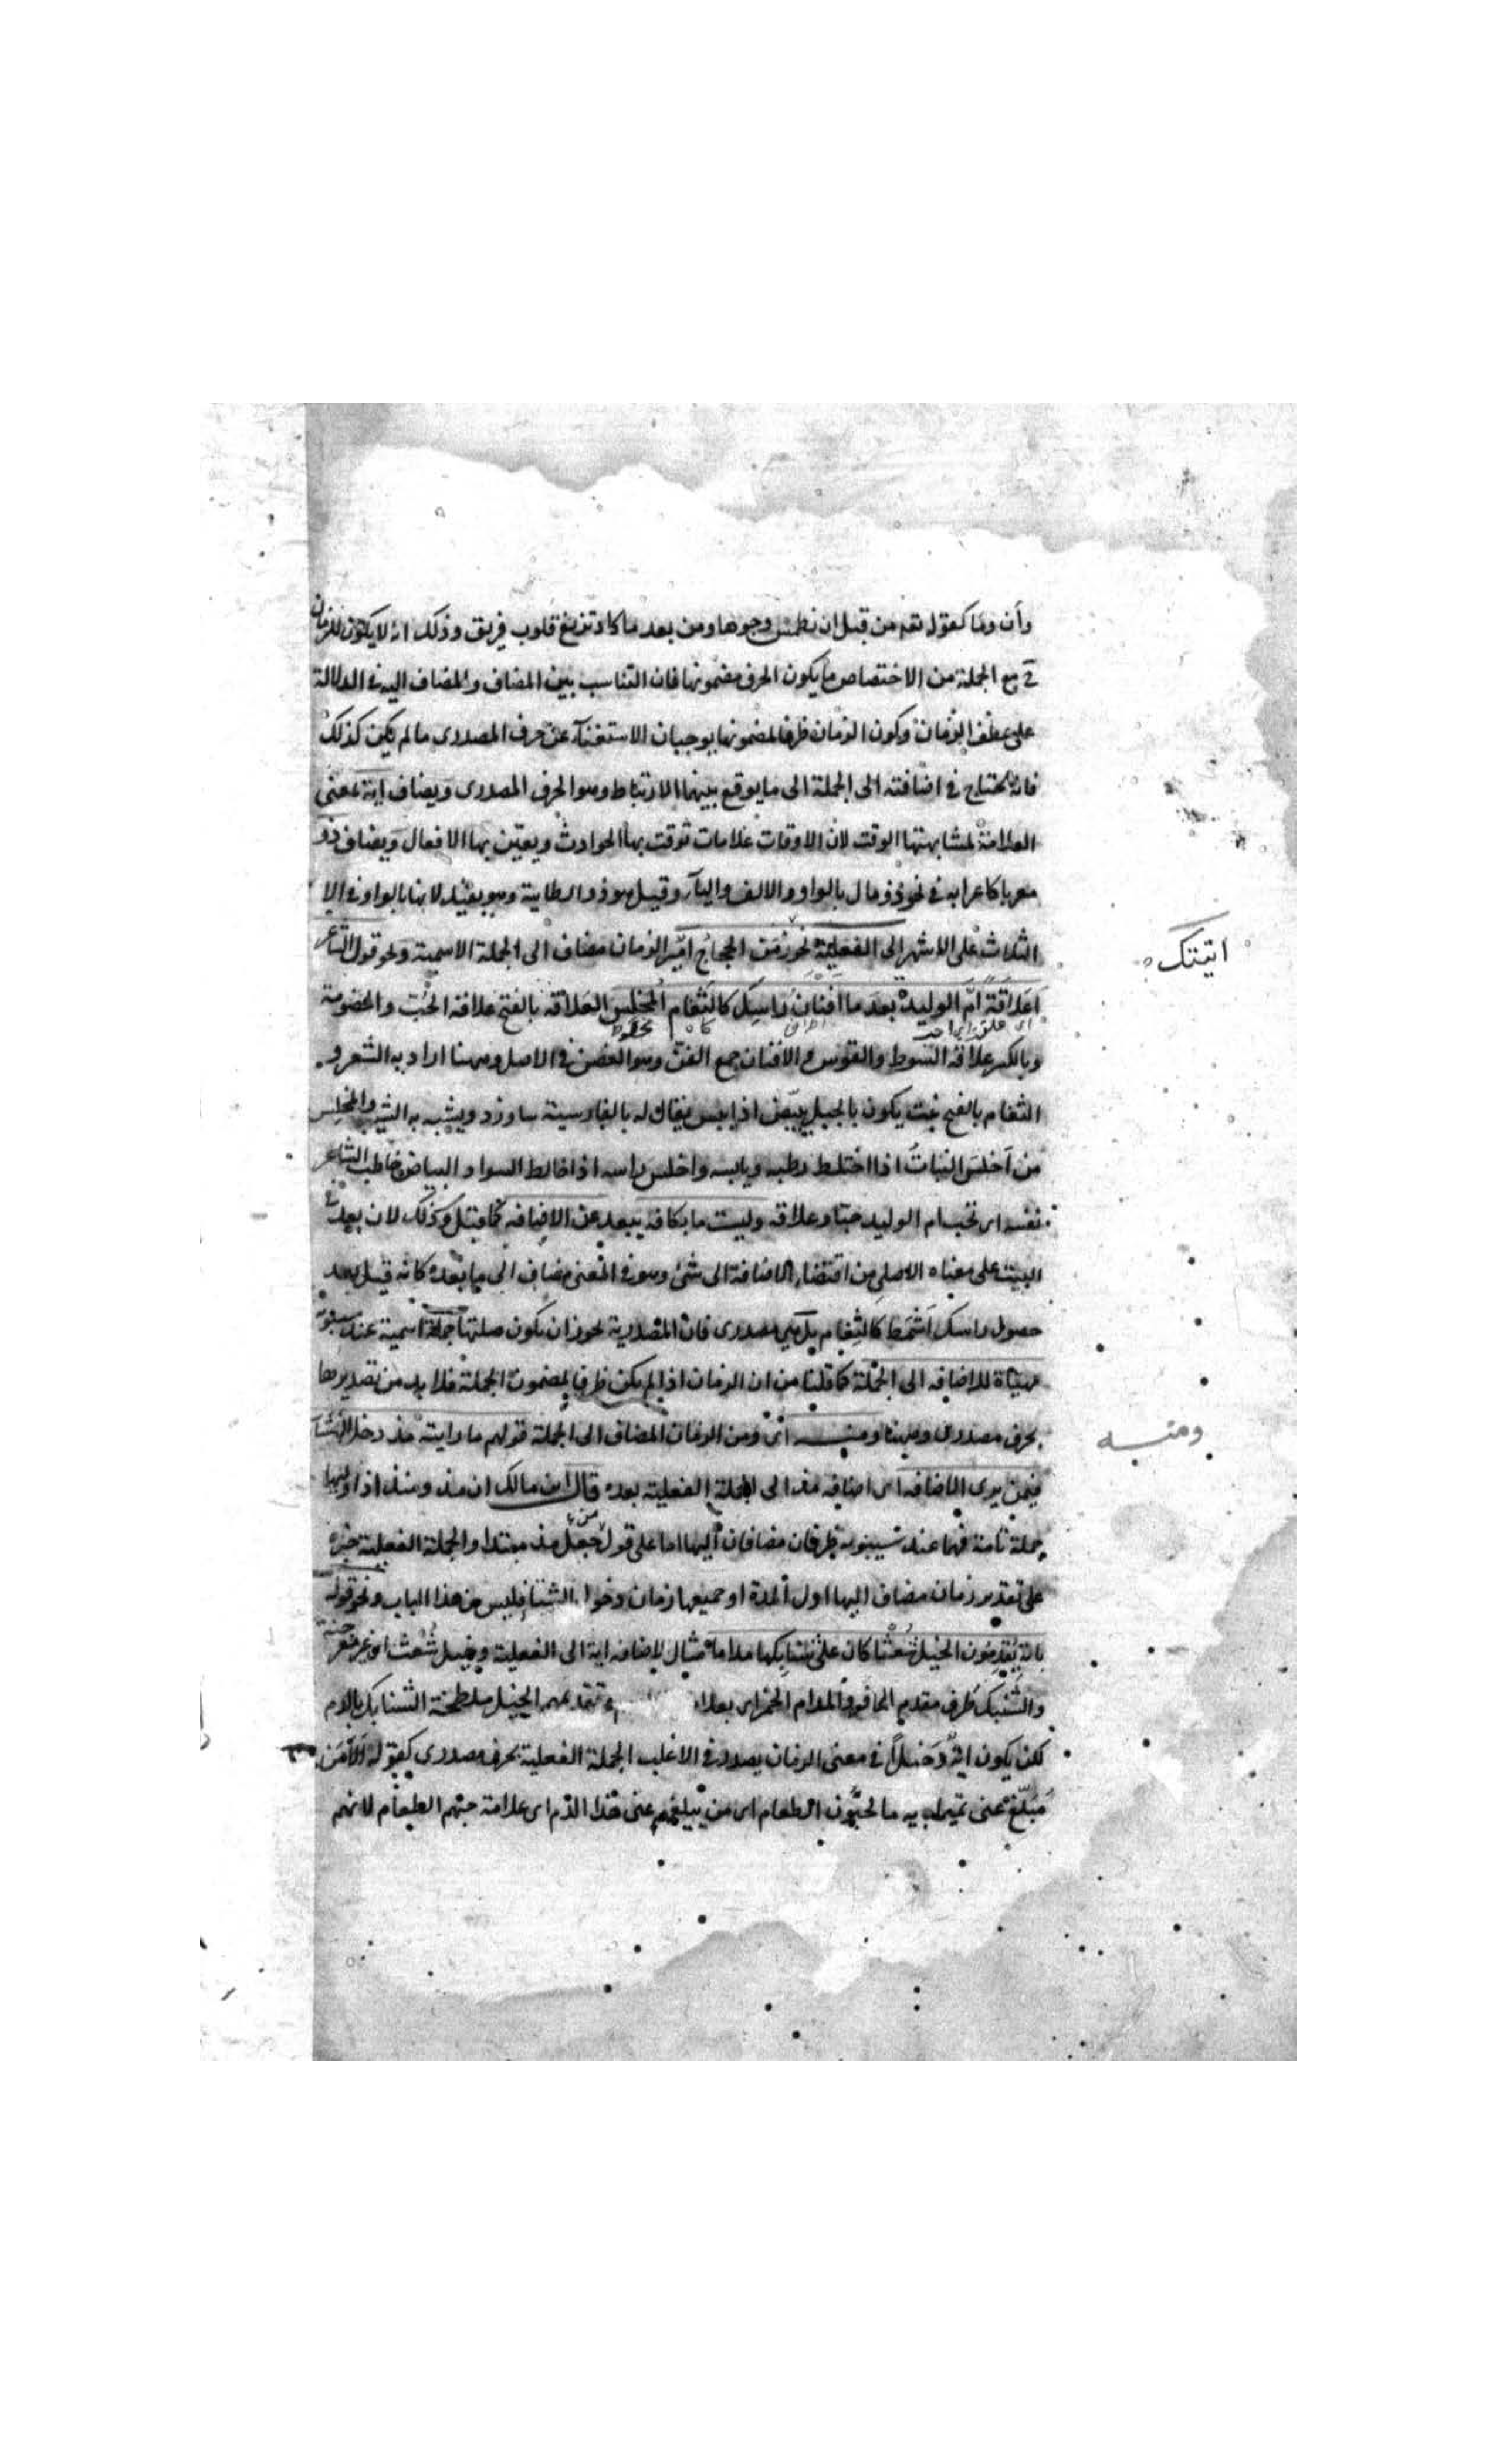 وأن وما كقوله تعه من قبل ان نطمس وجوها ومن بعد ما كاد تزيغ قلوب فريق وذلك انه لا يكون للزمان
ح مع الجملة من الاختصاص ما يكون الحرف مضمونها فان التناسب بين المضاف والمضاف اليه في الدلالة
على الزمان وكون الزمان ظرفا لمضمونها يوجبان الاستغناء عن حرف المصدرى ما لم يكن كذلك
فانه يحتاج في اضافته الى الجملة الى ما يوقع بينهما الارتباط وهو الحرف المصدرى ويضاف اية بمعنى
العلامة لمشابهتها الوقت لان الاوقات علامات توقت بها الحوادث ويعين بها الافعال ويضاف ذو
معربا كاعرابه في نحو ذو مال بالواو والالف والياء وقيل هو ذو الطاية وهو بعيد لا بنا بالواو في
الثلاث على الاشهر الى الفعلية نحو زمن الحجاج امير الزمان مضاف الى الجملة الاسمية ونحو قول الشاعر
اتيتك
اعلاقة ام الوليد بعد ما افنان راسك كالثغام المخلس العلاقة بالفتح علاقة الحب والخصومة
وبالكسر علاقة السوط والقوس والافنان جمع الفنن وهو الغصن في الاصل وههنا اراد به الشعر و
الثغام بالفتح نبت يكون بالجبل يبيض اذا يبس يقال له بالفارسية ويشبه به الشيب والمخلس
من اخلس النبات اذا اختلط رطبه ويابسه واخلس راسه اذا خالط السواد البياض خاطب الشاعر
نفسه اى تحب ام الوليد حبا وعلاقة وليست ما بكافة يبعد عن الاضافة كما قيل وكذلك لان بعد في
البيت على معناه الاصلى من اقتضاء الاضافة الى شئ وهو في المعنى مضاف الى ما بعده كانه قيل بعد
حصول راسك اشمط كالثغام بل هي مصدرى فان المصدرية يجوز ان يكون صلتها جملة اسمية عند سيبويه
مهياة للاضافة الى الجملة كما قلنا من ان الزمان اذا لم يكن ظرفا لمضمون الجملة فلا بد من تصديرها
بحرف مصدرى وههنا ومنه اى ومن الزمان المضاف الى الجملة قولهم ما رايته مذ دخل الشتا
ومنه
فيمن يرى الاضافة اى اضافة مذ الى الجملة الفعلية بعده قال ابن مالك ان مذ ومنذ اذا وليها
جملة تامة فهما عند سيبويه ظرفان مضافان اليها اما على قول من جعل مذ مبتدا والجملة الفعلية خبره
على تقدير زمان مضاف اليها اول المدة او جميعها زمان دخول الشتا فليس من هذا الباب ونحو قوله
باية يقدمون الخيل شعثا كان على سنابكها مداما مثال لاضافة اية الى الفعلية وخيل شعث اى
والسنبك طرف مقدم الحافر والمدام الخمر اى تقديمهم الخيل ملطخة السنابك بالدم
لكن يكون اية في معنى الزمان يصدر في الاغلب الجملة الفعلية بحرف مصدرى كقوله الا من
مبلغ عنى تميما باية ما تحبون الطعام اى من يبلغهم عنى هذا الذم اى علامة حبهم الطعام لانهم